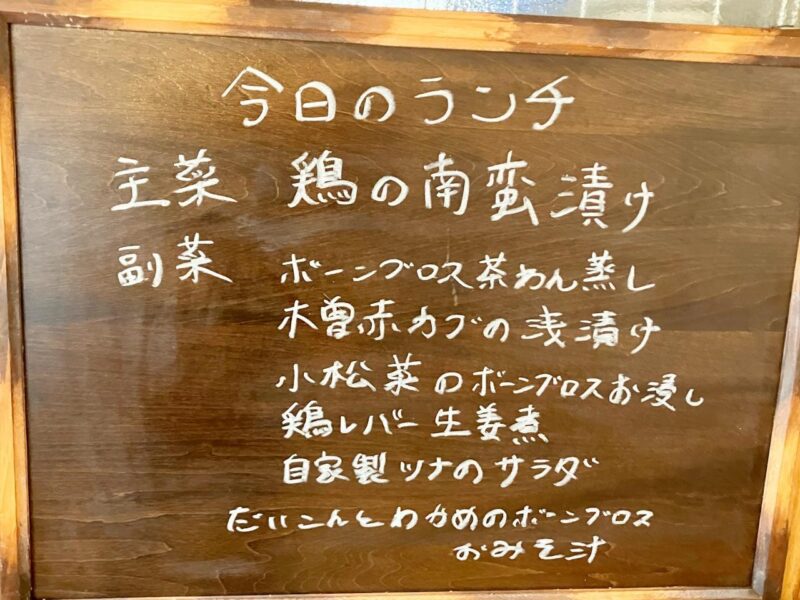 今日のランチ
主菜 鶏の南蛮漬け
副菜 ボーンブロス茶わん蒸し
木曽赤カブの浅漬け
小松菜のボーンブロスお浸し
鶏レバー生姜煮
自家製ツナのサラダ
だいこんとわかめのボーンブロス
おみそ汁